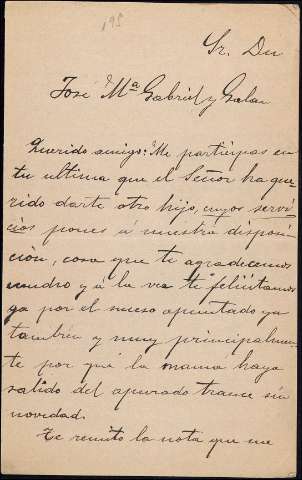 195
Sr. Dn
José Mª Gabriel y Galan
Querido amigo: Me participas en
tu ultima que el Señor ha que
rido darte otro hijo, cuyos servi
cios pones á nuestra disposi
ción, cosa que te agradecemos
mucho y á la vez te felicitamos
ya por el suceso apuntado ya
tambien y muy principalmen
te por que la mamá haya
salido del apurado trance sin
novedad.
Te remito la nota que me